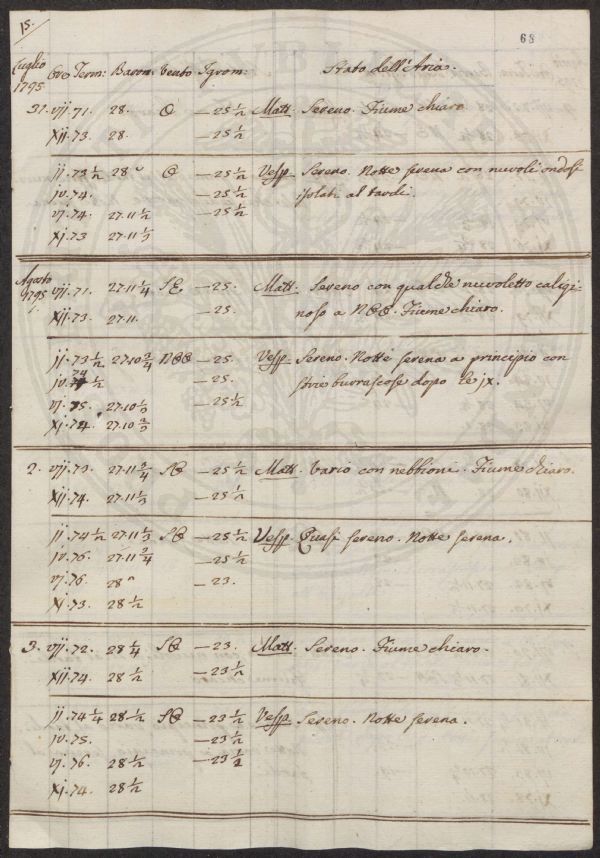 15.
68
Luglio 1795 Ore Term: Barom: Vento Igrom: Stato dell'Aria.
31. vij. 71. 28. O —25 1/2 Matt. Sereno. Fiume chiaro
xij. 73. 28. —25 1/2
ij. 73 1/2 28 " O —25 1/2 Vesp. Sereno. Notte serena con nuvoli ondosi
iv. 74. —25 1/2 isolati al tardi.
vj. 74. 27.11 1/2 —25 1/2
xj. 73 27.11 1/3
Agosto 1795
1. vij. 71. 27.11 1/4 SE —25. Matt. Sereno con qualche nuvoletto caligi
xij. 73. 27.11. —25. noso a NOO. Fiume chiaro.
ij. 73 1/2 27.10 3/4 NOO —25. Vesp. Sereno. Notte serena a principio con
iv. 74 1/2 —25. strie burrascose dopo le ix.
vj. 75. 27.10 1/3 —25 1/2
xj. 74. 27.10 2/3
2. vij. 73. 27.11 3/4 SO —25 1/2 Matt. Vario con nebbioni. Fiume chiaro.
xij. 74. 27.11 1/3 —25 1/2
ij. 74 1/2 27.11 1/3 SO —25 1/2 Vesp. Quasi sereno. Notte serena.
iv. 76. 27.11 3/4 —25 1/2
vj. 76. 28 " —23.
xj. 73. 28 1/2
3. vij. 72. 28 1/4 SO —23. Matt. Sereno. Fiume chiaro.
xij. 74. 28 1/2 —23 1/2
ij. 74 1/4 28 1/2 SO —23 1/2 Vesp. Sereno. Notte serena.
iv. 75. —23 1/2
vj. 76. 28 1/2 —23 1/2
xj. 74. 28 1/2